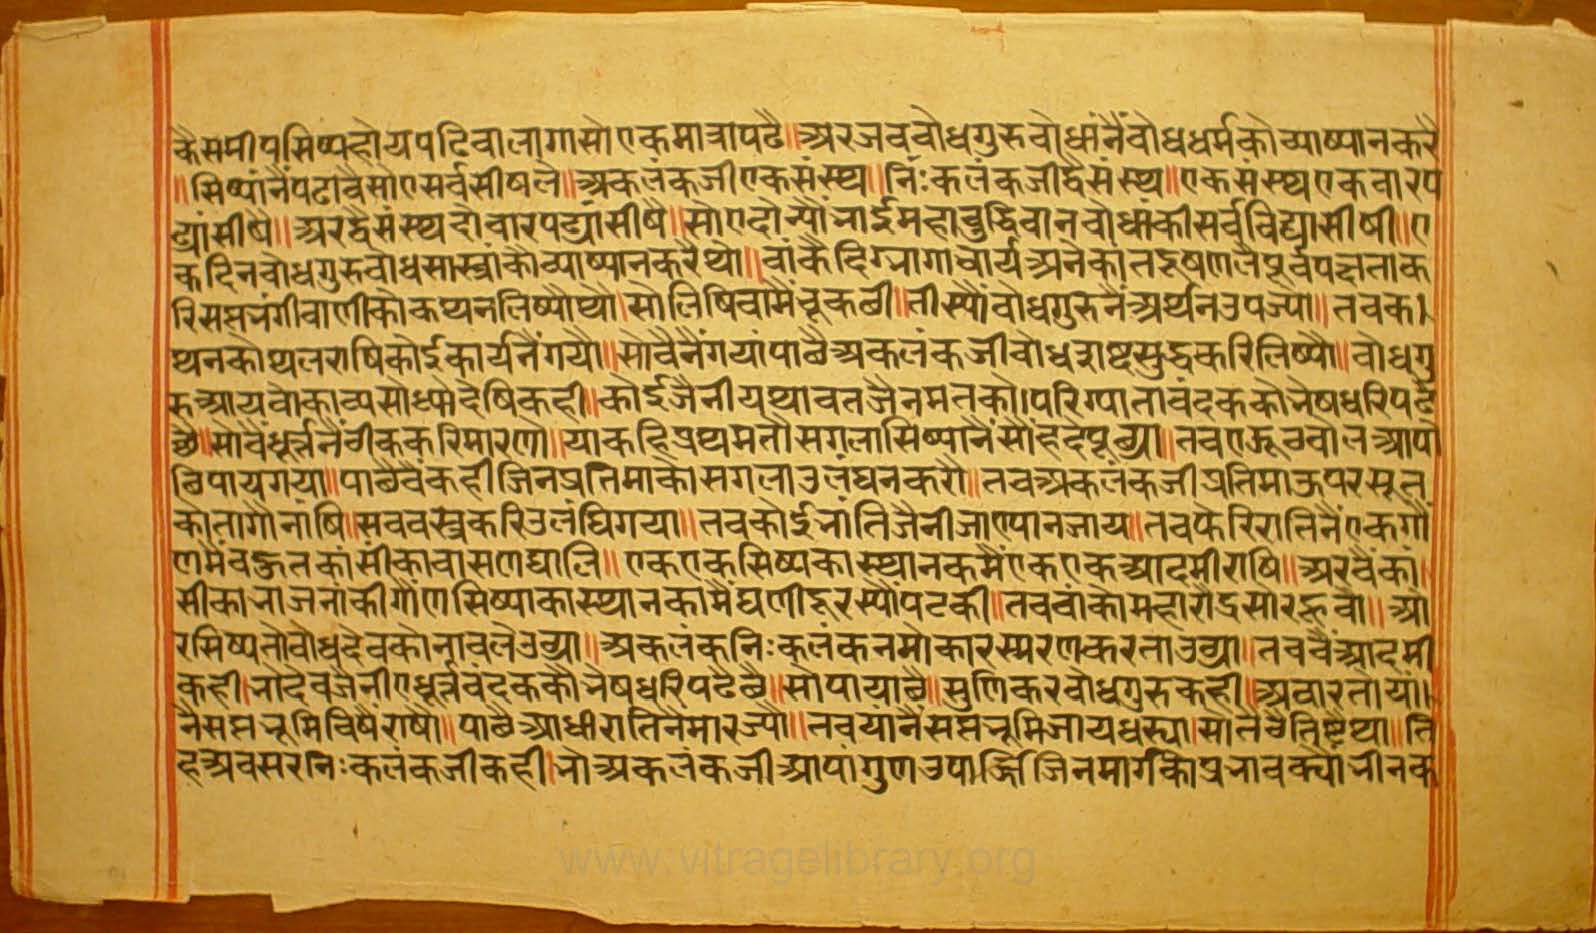 कैसमीपसिष्यहोयपढिवालागासोएकमात्रापढै॥अरजववोधगुरुवोधांनैंवोधधर्मकोव्याष्यानकरै
॥सिष्यांनैंपढावैसोएसर्वसीषलै॥अकलंकजीएकसंस्थ॥निःकलंकजीद्वैसंस्थ॥एकसंस्थएकवारप
ढ्यांसीषै॥अरद्वैसंस्थदोवारपढ्यांसीषै॥सोएदोन्यौंभाईमहावुद्धिवानवोधांकीसर्वविद्यासीषी॥ए
कदिनवोधगुरुवोधसास्त्रांकौव्याष्यानकरैथो॥वांकैदिग्नागाचार्यअनेकांतदूषणलैपूर्वपक्षताक
रिसप्तभंगीवाणीकोकथनलिष्यौथो।सोलिषिवामैंचूकछी॥तीस्यौंवोधगुरुनैंअर्थनउपज्यो॥तवक।
थनकोथलराषिकोईकार्यनैंगयौ॥सोवैनैंगयांपाछैअकलंकजीवोधराष्टसुद्धकरिलिष्यौ॥वोधगु
रुआयवोकाव्यसोध्योदेषिकही॥कोईजैनीयथावतजैनमतको।परिग्यातावंदककोभेषधरिपढै
छै॥सोवैंधूर्त्तनैंठीककरिमारणो॥याकहिप्रथमतौसगलासिष्यांनैंसोंहदेपूछ्या॥तवएझूठवोलआपौ
छिपायगया॥पाछैवैकहीजिनप्रतिमाकोसगलाउलंघनकरौ॥तवअकलंकजीप्रतिमाऊपरसूत
कोतागौनांषि॥सववस्त्रकरिउलंघिगया॥तवकोईभांतिजैनीजाण्यानजाय॥तवफेरिरातिनैंएकगौं
णमैंवहुतकांसीकावासणघालि॥एकएकसिष्यकास्थानकमैंएकएकआदमीराषि॥अरवैंकां।
सीकाभाजनांकीगौंणसिष्याकास्थानकामैंघणीदूरस्यौंपटकी॥तववांकोमहारौद्रसोरहूवो॥औ
रसिष्यतोवोधदेवकोनावलेउठ्या॥अकलंकनिःकलंकनमोकारस्मरणकरताउठ्या॥तववैंआदमी
कही।भोदेवजैनीएधूर्त्तवंदककौभेषधरिपढैछै॥सोपायाछै॥सुणिकरवोधगुरुकही।अवारतोयां।
नैसप्तभूमिविषैंराषौ॥पाछैआधीरातिनैंमारज्यौ॥तवयांनैसप्तभूमिजायधस्या।सोतवैतिष्टैथा॥ति
हअवसरनिःकलंकजीकही।भोअकलंकजीआपांगुणउपार्ज्जिजिनमार्गकोप्रभावक्योंभीनक
www.vitragelibrary.org